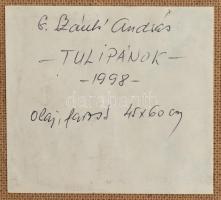 G. Szántó András
- TULIPÁNOK -
- 1998 -
olaj, farost 45x60 cm